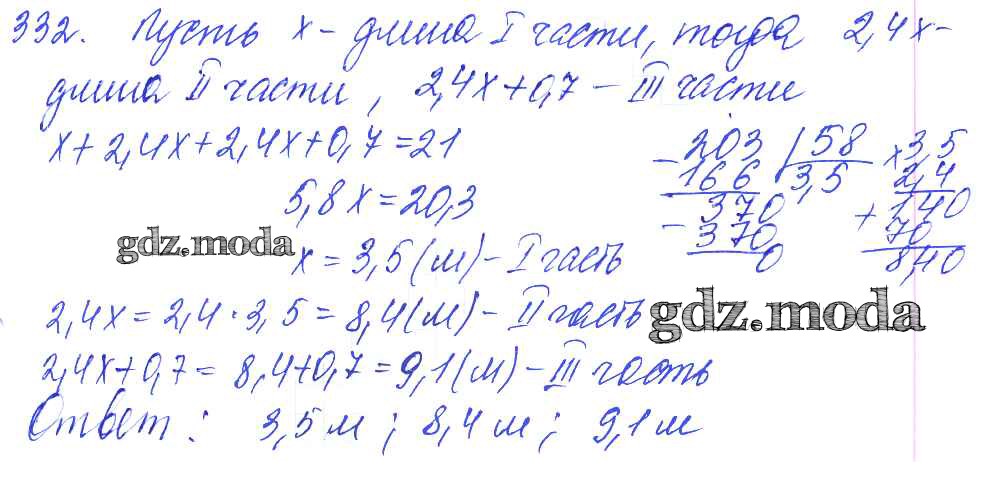 332. Пусть x - длина I части, тогда 2,4x -
длина II части, 2,4x+0,7 - III части
x+2,4x+2,4x+0,7=21
5,8x=20,3
x = 3,5 (м) - I часть
2,4x = 2,4 · 3,5 = 8,4 (м) - II часть
2,4x+0,7 = 8,4+0,7 = 9,1 (м) - III часть
Ответ: 3,5 м; 8,4 м; 9,1 м
- 203 | 58
166 3,5
- 370
370
0
x 3,5
2,4
+ 140
70
8,40
gdz.moda
gdz.moda